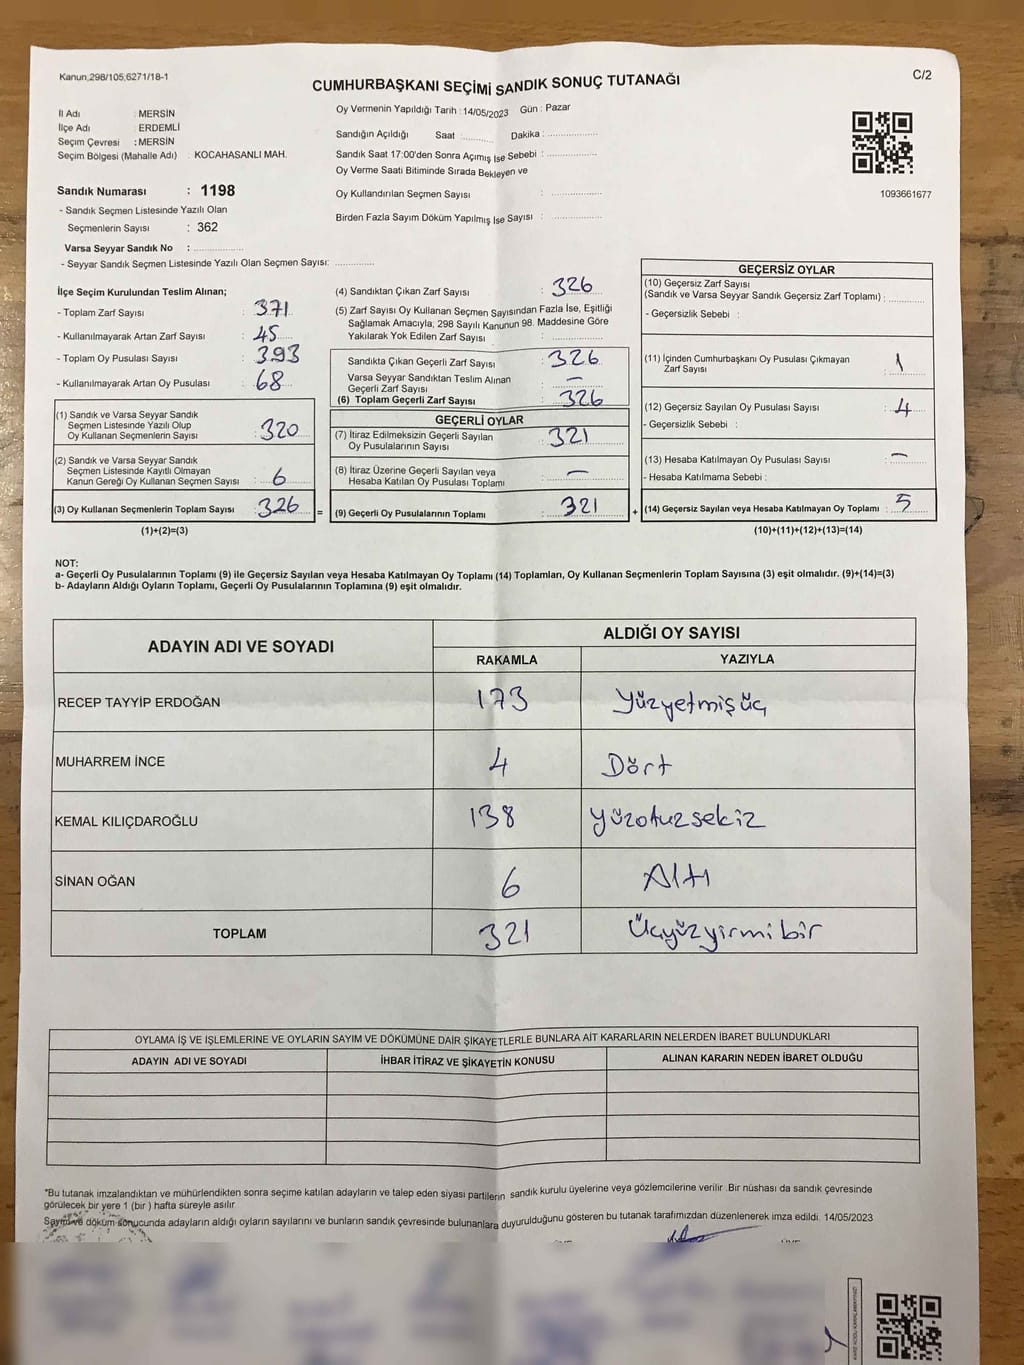 Kanun,298/105,6271/18-1
C/2
CUMHURBAŞKANI SEÇİMİ SANDIK SONUÇ TUTANAĞI
İl Adı : MERSİN
İlçe Adı : ERDEMLİ
Seçim Çevresi : MERSİN
Seçim Bölgesi (Mahalle Adı) : KOCAHASANLI MAH.
Oy Vermenin Yapıldığı Tarih : 14/05/2023 Gün : Pazar
Sandığın Açıldığı Saat : Dakika :
Sandık Saat 17:00'den Sonra Açımış İse Sebebi :
Oy Verme Saati Bitiminde Sırada Bekleyen ve
Oy Kullandırılan Seçmen Sayısı :
Birden Fazla Sayım Döküm Yapılmış İse Sayısı :
1093661677
Sandık Numarası : 1198
- Sandık Seçmen Listesinde Yazılı Olan
Seçmenlerin Sayısı : 362
Varsa Seyyar Sandık No :
- Seyyar Sandık Seçmen Listesinde Yazılı Olan Seçmen Sayısı:
İlçe Seçim Kurulundan Teslim Alınan;
- Toplam Zarf Sayısı : 371
- Kullanılmayarak Artan Zarf Sayısı : 45
- Toplam Oy Pusulası Sayısı : 393
- Kullanılmayarak Artan Oy Pusulası : 68
(1) Sandık ve Varsa Seyyar Sandık
Seçmen Listesinde Yazılı Olup
Oy Kullanan Seçmenlerin Sayısı : 320
(2) Sandık ve Varsa Seyyar Sandık
Seçmen Listesinde Kayıtlı Olmayan
Kanun Gereği Oy Kullanan Seçmen Sayısı : 6
(3) Oy Kullanan Seçmenlerin Toplam Sayısı : 326 =
(1)+(2)=(3)
(4) Sandıktan Çıkan Zarf Sayısı : 326
(5) Zarf Sayısı Oy Kullanan Seçmen Sayısından Fazla İse, Eşitliği
Sağlamak Amacıyla, 298 Sayılı Kanunun 98. Maddesine Göre
Yakılarak Yok Edilen Zarf Sayısı :
Sandıkta Çıkan Geçerli Zarf Sayısı : 326
Varsa Seyyar Sandıktan Teslim Alınan
Geçerli Zarf Sayısı : —
(6) Toplam Geçerli Zarf Sayısı : 326
GEÇERLİ OYLAR
(7) İtiraz Edilmeksizin Geçerli Sayılan
Oy Pusulalarının Sayısı : 321
(8) İtiraz Üzerine Geçerli Sayılan veya
Hesaba Katılan Oy Pusulası Toplamı : —
(9) Geçerli Oy Pusulalarının Toplamı : 321 +
GEÇERSİZ OYLAR
(10) Geçersiz Zarf Sayısı
(Sandık ve Varsa Seyyar Sandık Geçersiz Zarf Toplamı) :
- Geçersizlik Sebebi :
(11) İçinden Cumhurbaşkanı Oy Pusulası Çıkmayan
Zarf Sayısı : 1
(12) Geçersiz Sayılan Oy Pusulası Sayısı : 4
- Geçersizlik Sebebi :
(13) Hesaba Katılmayan Oy Pusulası Sayısı : —
- Hesaba Katılmama Sebebi :
(14) Geçersiz Sayılan veya Hesaba Katılmayan Oy Toplamı : 5
(10)+(11)+(12)+(13)=(14)
NOT:
a- Geçerli Oy Pusulalarının Toplamı (9) ile Geçersiz Sayılan veya Hesaba Katılmayan Oy Toplamı (14) Toplamları, Oy Kullanan Seçmenlerin Toplam Sayısına (3) eşit olmalıdır. (9)+(14)=(3)
b- Adayların Aldığı Oyların Toplamı, Geçerli Oy Pusulalarının Toplamına (9) eşit olmalıdır.
ADAYIN ADI VE SOYADI
ALDIĞI OY SAYISI
RAKAMLA YAZIYLA
RECEP TAYYİP ERDOĞAN 173 Yüzyetmişüç
MUHARREM İNCE 4 Dört
KEMAL KILIÇDAROĞLU 138 yüzotuzsekiz
SİNAN OĞAN 6 Altı
TOPLAM 321 Üçyüzyirmibir
OYLAMA İŞ VE İŞLEMLERİNE VE OYLARIN SAYIM VE DÖKÜMÜNE DAİR ŞİKAYETLERLE BUNLARA AİT KARARLARIN NELERDEN İBARET BULUNDUKLARI
ADAYIN ADI VE SOYADI İHBAR İTİRAZ VE ŞİKAYETİN KONUSU ALINAN KARARIN NEDEN İBARET OLDUĞU
"Bu tutanak imzalandıktan ve mühürlendikten sonra seçime katılan adayların ve talep eden siyası partilerin sandık kurulu üyelerine veya gözlemcilerine verilir .Bir nüshası da sandık çevresinde
görülecek bir yere 1 (bir ) hafta süreyle asılır
Sayım ve döküm sonucunda adayların aldığı oyların sayılarını ve bunların sandık çevresinde bulunanlara duyurulduğunu gösteren bu tutanak tarafımızdan düzenlenerek imza edildi. 14/05/2023